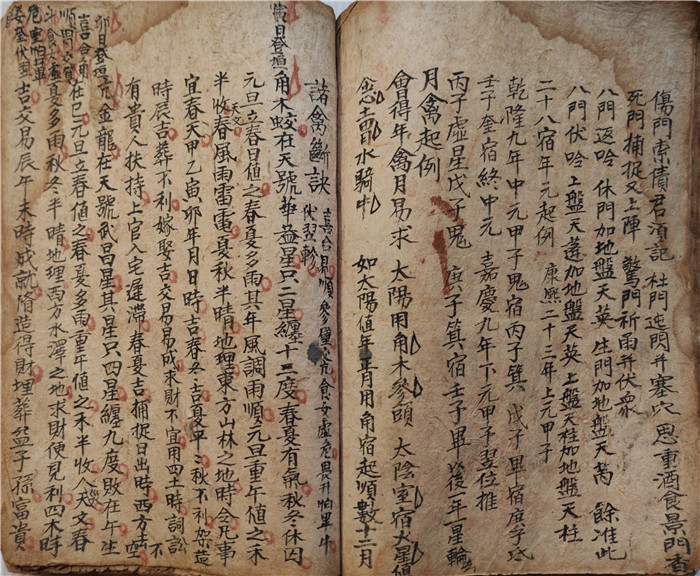 傷門索債君須記 杜門逃閃并塞穴 思量酒食景門香
死門捕捉又上陣 驚門祈雨并伏眾
八門返吟 休門加地盤天英 生門加地盤天芮 餘准此
八門伏吟 上盤天蓬加地盤天英上盤天柱加地盤天柱
二十八宿年元起例 康熙二十三年上元甲子
乾隆九年中元甲子鬼宿丙子箕 戊子畢宿庚子氐
壬子奎宿終中元 嘉慶九年下元甲子翌位推
丙子虛星戊子鬼 庚子箕宿壬子畢以後一年星輪
月禽起例
會得年禽月易求 太陽用角木參頭 太陰室宿火星值
如太陽值年正月用角宿起順數十二月
諸禽斷訣
角木蛟在天號 益星只二星纏十三度春夏有氣秋冬休囚
元旦立春日值之春夏多雨其年風調雨順元旦重午值之禾
半收天文春風雨雷電夏秋半晴地理東方山林之地時合凡事
宜春天甲乙寅卯年月日時吉春冬吉夏平秋不利架造
時辰吉葬不利嫁娶吉交易易成求財不宜用四土時詞訟不
有貴人扶持上官入宅遲滯春夏吉捕捉日出時西方去
卯日登壇亢金龍在天號武昌星其星只四星纏九度敗在午生
在巳元旦立春值之春夏多雨重午值之禾半收天文春
夏多雨秋冬半晴地理西方水澤之地求財便見利四木時
吉交易辰午未時成就脩造得財埋葬益子孫富貴